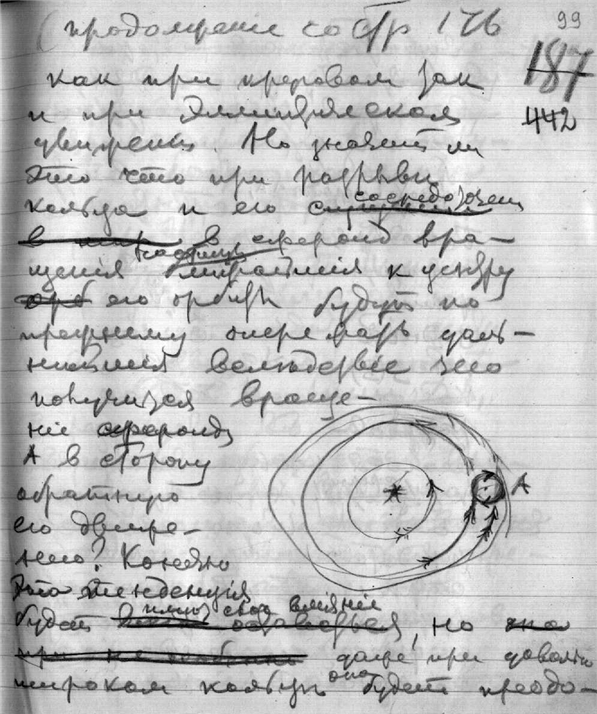 (продолжение со стр 176 99
187
442
как при круговом так
и при эллиптическом
движении. Но значит ли
это что при разрыве
кольца и его сосредоточен
в сфероид вра-
щения частицы ближайшия к центру
его орбиты будут по
прежнему опережать даль-
нейшия вследствие чего
получится враще-
ние сфероида
А в сторону
обратную
его движе-
нию? Конечно
эта тенденция
будет иметь свое влияние, но
даже при довольно
широком кольце она будет преодо-
А